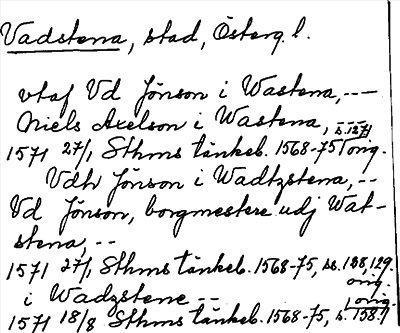 Vadstena, stad, Österg. l.
vtaf Vd Jönson i Wastena, ---
Niels Axelson i Wastena, ---
1571 27/1, Sthms tänkeb. 1568-75, s. 127, orig.
Vdh Jönson i Wadtzstena, --
Vd Jönson, borgmestere udj Wat-
stena, --
1571 27/1, Sthms tänkeb. 1568-75, ss. 128, 129, orig.
i Wadzstene --
1571 18/8 Sthms tänkeb. 1568-75, s. 158, orig.